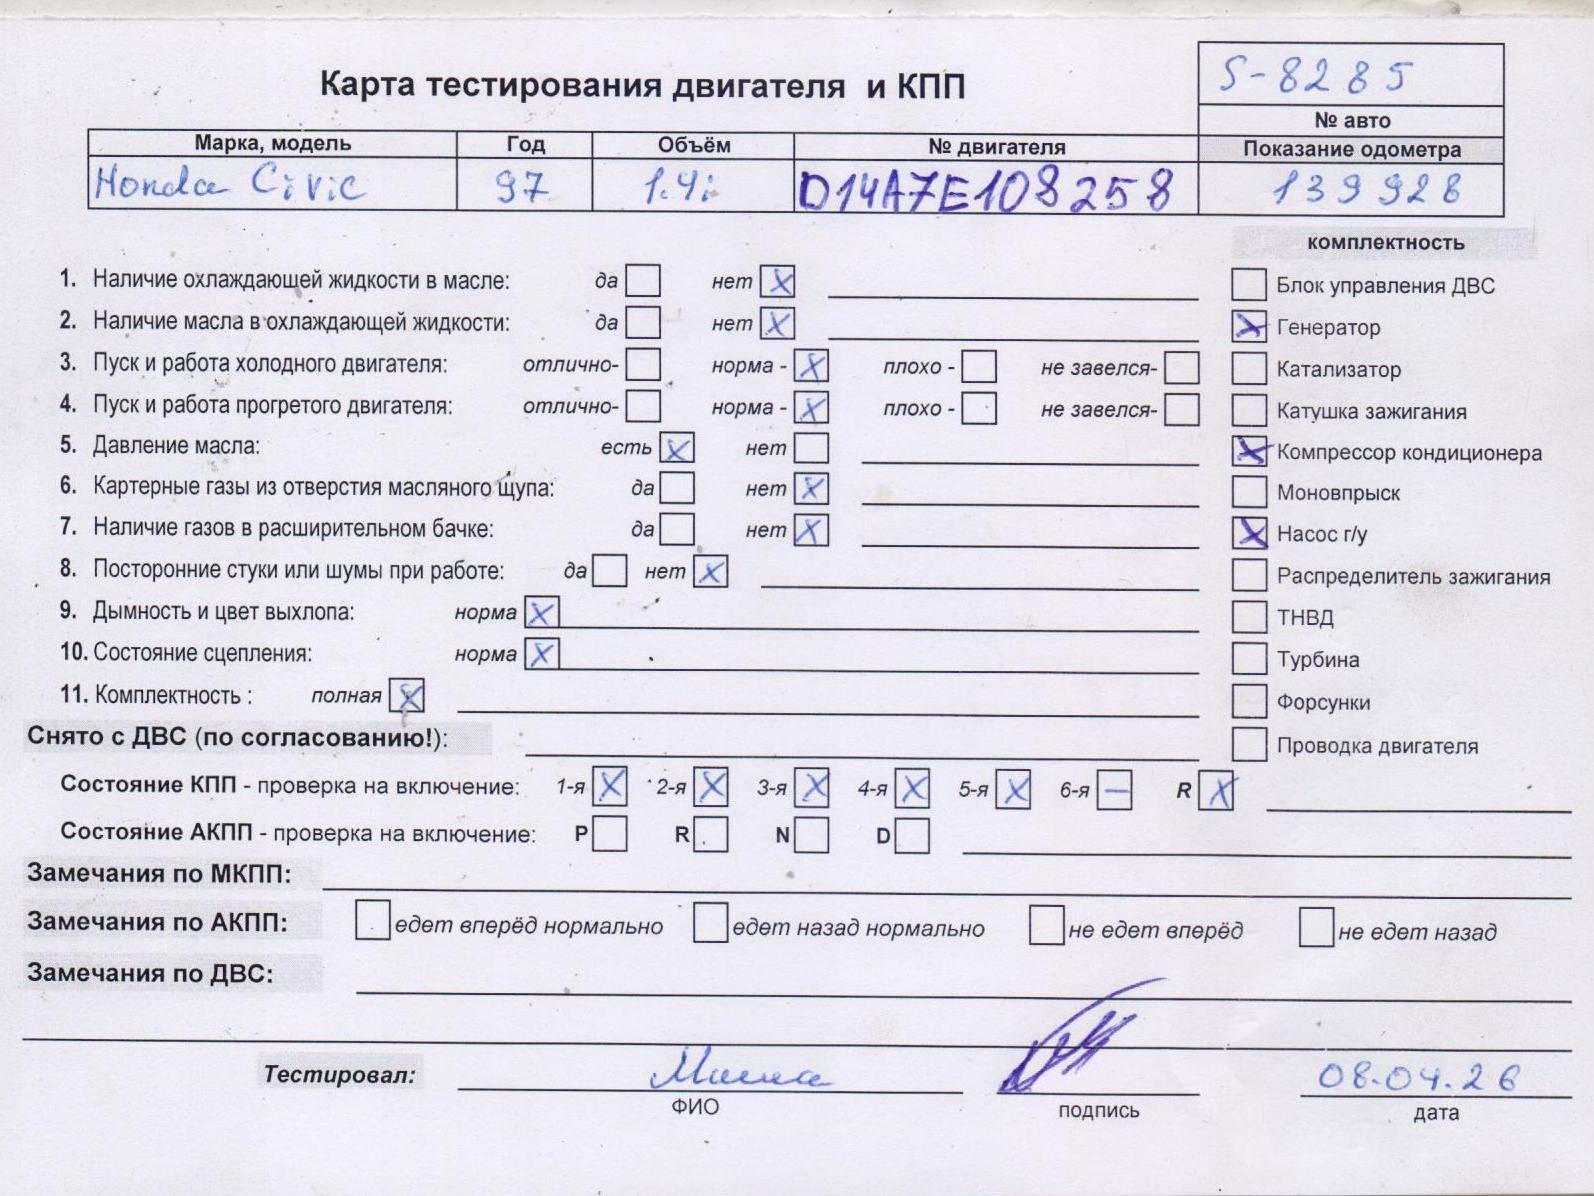 S-8285
Карта тестирования двигателя и КПП
№ авто
Марка, модель Год Объём № двигателя Показание одометра
Honda Civic 97 1.4i D14A7E108258 139928
комплектность
1. Наличие охлаждающей жидкости в масле: да нет X
Блок управления ДВС
2. Наличие масла в охлаждающей жидкости: да нет X
X Генератор
3. Пуск и работа холодного двигателя: отлично- норма - X плохо - не завелся-
Катализатор
4. Пуск и работа прогретого двигателя: отлично- норма - X плохо - не завелся-
Катушка зажигания
5. Давление масла: есть X нет
X Компрессор кондиционера
6. Картерные газы из отверстия масляного щупа: да нет X
Моновпрыск
7. Наличие газов в расширительном бачке: да нет X
X Насос г/у
8. Посторонние стуки или шумы при работе: да нет X
Распределитель зажигания
9. Дымность и цвет выхлопа: норма X
ТНВД
10. Состояние сцепления: норма X
Турбина
11. Комплектность : полная X
Форсунки
Снято с ДВС (по согласованию!):
Проводка двигателя
Состояние КПП - проверка на включение: 1-я X 2-я X 3-я X 4-я X 5-я X 6-я — R X
Состояние АКПП - проверка на включение: P R N D
Замечания по МКПП:
Замечания по АКПП: едет вперёд нормально едет назад нормально не едет вперёд не едет назад
Замечания по ДВС:
Тестировал: Миша 08.04.26
ФИО подпись дата